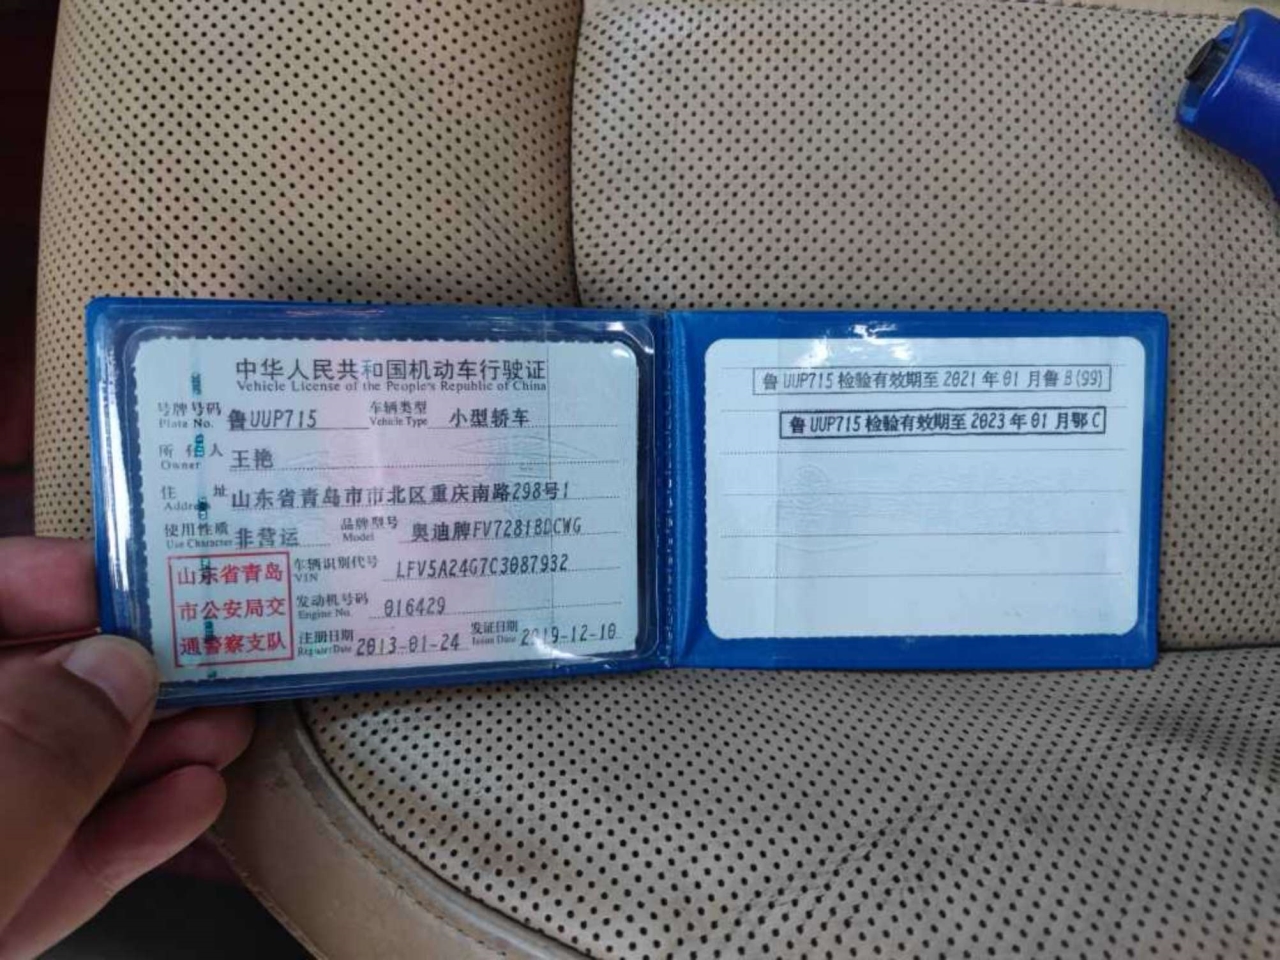 中华人民共和国机动车行驶证
Vehicle License of the People's Republic of China
号牌号码 鲁UUP715 车辆类型 小型轿车
Plate No. Vehicle Type
所有人 王艳
Owner
住址 山东省青岛市市北区重庆南路298号1
Address
使用性质 非营运 品牌型号 奥迪牌FV7281BDCWG
Use Character Model
车辆识别代号 LFV5A24G7C3087932
VIN
发动机号码 016429
Engine No.
注册日期 2013-01-24 发证日期 2019-12-10
Register Date Issue Date
山东省青岛
市公安局交
通警察支队
鲁UUP715检验有效期至2021年01月鲁B(99)
鲁UUP715检验有效期至2023年01月鄂C